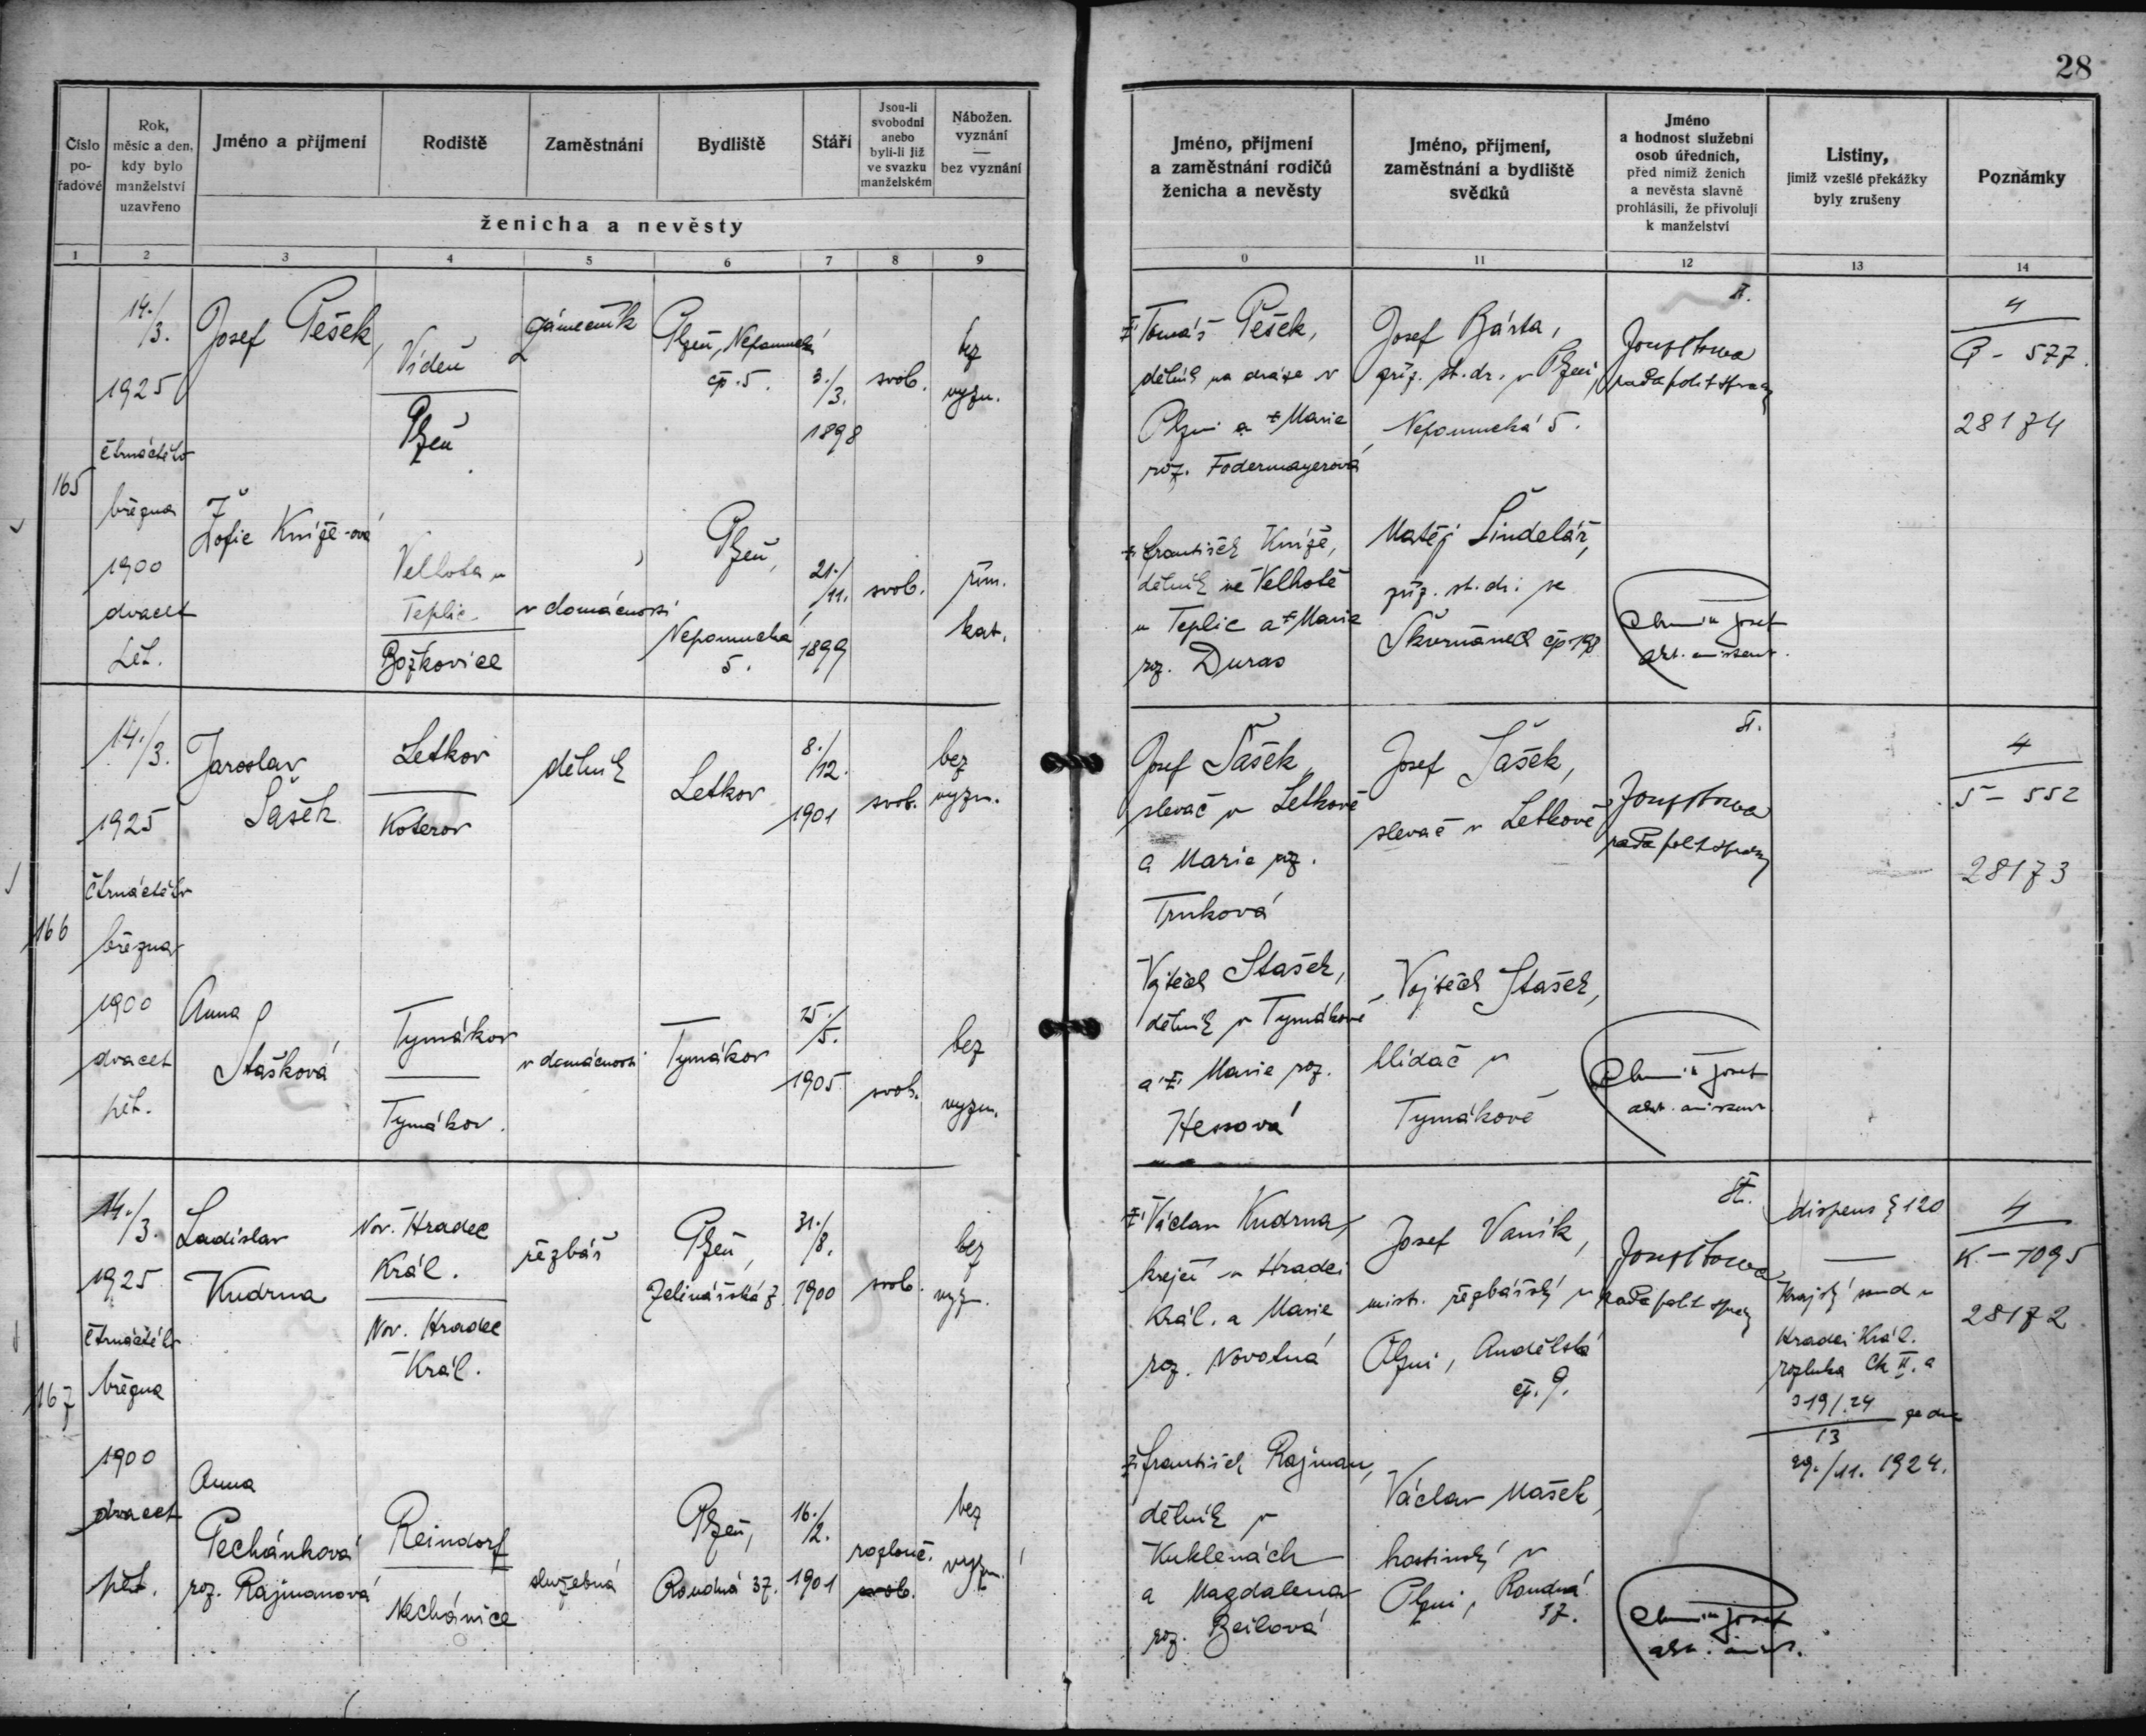 28
Číslo
po-
řadové
Rok,
měsíc a den,
kdy bylo
manželství
uzavřeno
Jméno a příjmení
Rodiště
Zaměstnání
Bydliště
Stáří
Jsou-li
svobodni
anebo
byli-li již
ve svazku
manželském
Nábožen.
vyznání
—
bez vyznání
ženicha a nevěsty
Jméno, příjmení
a zaměstnání rodičů
ženicha a nevěsty
Jméno, příjmení,
zaměstnání a bydliště
svědků
Jméno
a hodnost služební
osob úředních,
před nimiž ženich
a nevěsta slavně
prohlásili, že přivolují
k manželství
Listiny,
jimiž vzešlé překážky
byly zrušeny
Poznámky
1 2 3 4 5 6 7 8 9 0 11 12 13 14
165
14./3.
1925
čtrnáctého
března
1900
dvacet
pět.
Josef Pešek,
Vídeň
Plzeň
zámečník
Plzeň, Nepomucká
čp. 5.
3./3.
1898
svob.
bez
vyzn.
Tomáš Pešek,
dělník na dráze v
Plzni a Marie
roz. Fodermayerová
Josef Bárta,
zříz. st. dr. v Plzni,
Nepomucká 5.
rada polit. správy
4
P - 577.
28174
Žofie Kníže-ová
Velhota u
Teplic
Božkovice
v domácnosti
Plzeň,
Nepomucka
5.
21./11.
1899
svob.
řím.
kat.
František Kníže,
dělník ve Velhotě
u Teplic a Marie
roz. Duras
Matěj Šindelář,
zříz. st. dr. ve
Škvrňanech čp. 198
Josef
166
14./3.
1925
čtrnáctého
března
1900
dvacet
pět.
Jaroslav
Šašek
Letkov
Koterov
dělník
Letkov
8./12.
1901
svob.
bez
vyzn.
Josef Šašek
slevač v Letkově
a Marie roz.
Trnková
Josef Šašek,
slevač v Letkově
rada polit. správy
4
Š - 552
28173
Anna
Stašková
Tymákov
Tymákov.
v domácnosti
Tymákov
25./5.
1905
svob.
bez
vyzn.
Vojtěch Stašek,
dělník v Tymákově
a Marie roz.
Hessová
Vojtěch Stašek,
hlídač v
Tymákově
Josef
167
14./3.
1925
čtrnáctého
března
1900
dvacet
pět.
Ladislav
Kudrna
Nov. Hradec
Král.
Nov. Hradec
Král.
řezbář
Plzeň,
Zelinářská 7.
31./8.
1900
svob.
bez
vyz.
Václav Kudrna,
krejčí v Hradci
Král. a Marie
roz. Novotná
Josef Vaník,
mistr. řezbářský v
Plzni, Andělská
čp. 9.
rada polit. správy
dispens § 120
Krajský soud v
Hradci Král.
rozluka Ck II. a
319/24 ze dne
13
29./11. 1924.
4
K - 1095
28172
Anna
Pechánková
roz. Rajmanová
Reindorf
Nechánice
služebná
Plzeň,
Roudná 37.
16./2.
1901
rozlouč.
svob.
bez
vyzn.
František Rajman,
dělník v
Kuklenách
a Magdalena
roz. Beilová
Václav Mašek,
hostinský v
Plzni, Roudná
37.
Josef